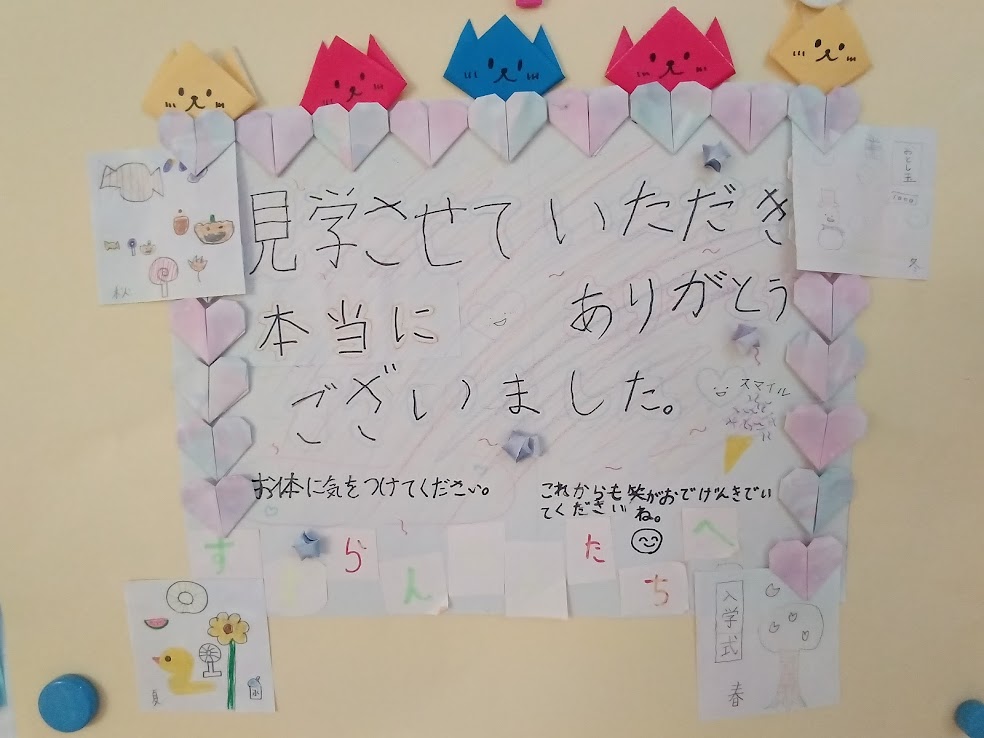 見学させていただき
本当に ありがとう
ございました。
スマイル
お体に気をつけてください。
これからも笑がおでげんきでい
てくださいね。
す ら ん た ち へ
おとし玉
冬
夏
入学式
春